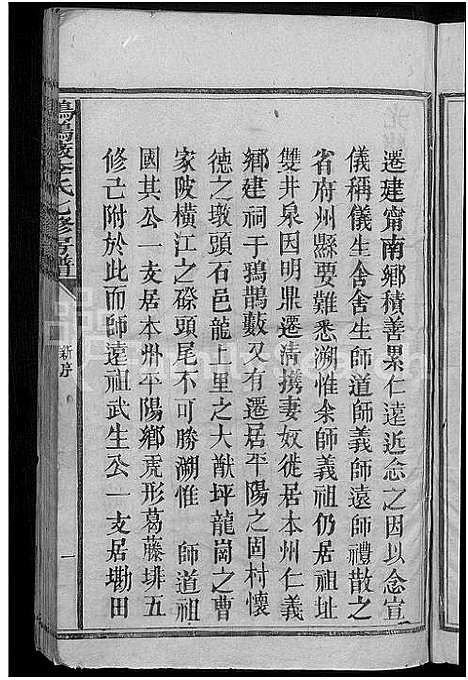 遷建甯南鄉積善累仁遠近念之因以念宣
儀稱儀生舍舍生師道師義師遠師禮散之
省府州縣要難悉溯惟余師義祖仍居祖址
雙井泉因明鼎遷清携妻奴徙居本州仁義
鄉建祠于鴉鵲藪又有遷居平陽之固村懷
德之墩頭石邑龍上里之大猷坪龍崗之曹
家陂橫江之磜頭尾不可勝溯惟 師道祖
國其公一支居本州平陽鄉虎形葛藤排五
修亡附於此而師遠祖武生公一支居塘田
鴉鵲藪李氏七修房譜
新序
一